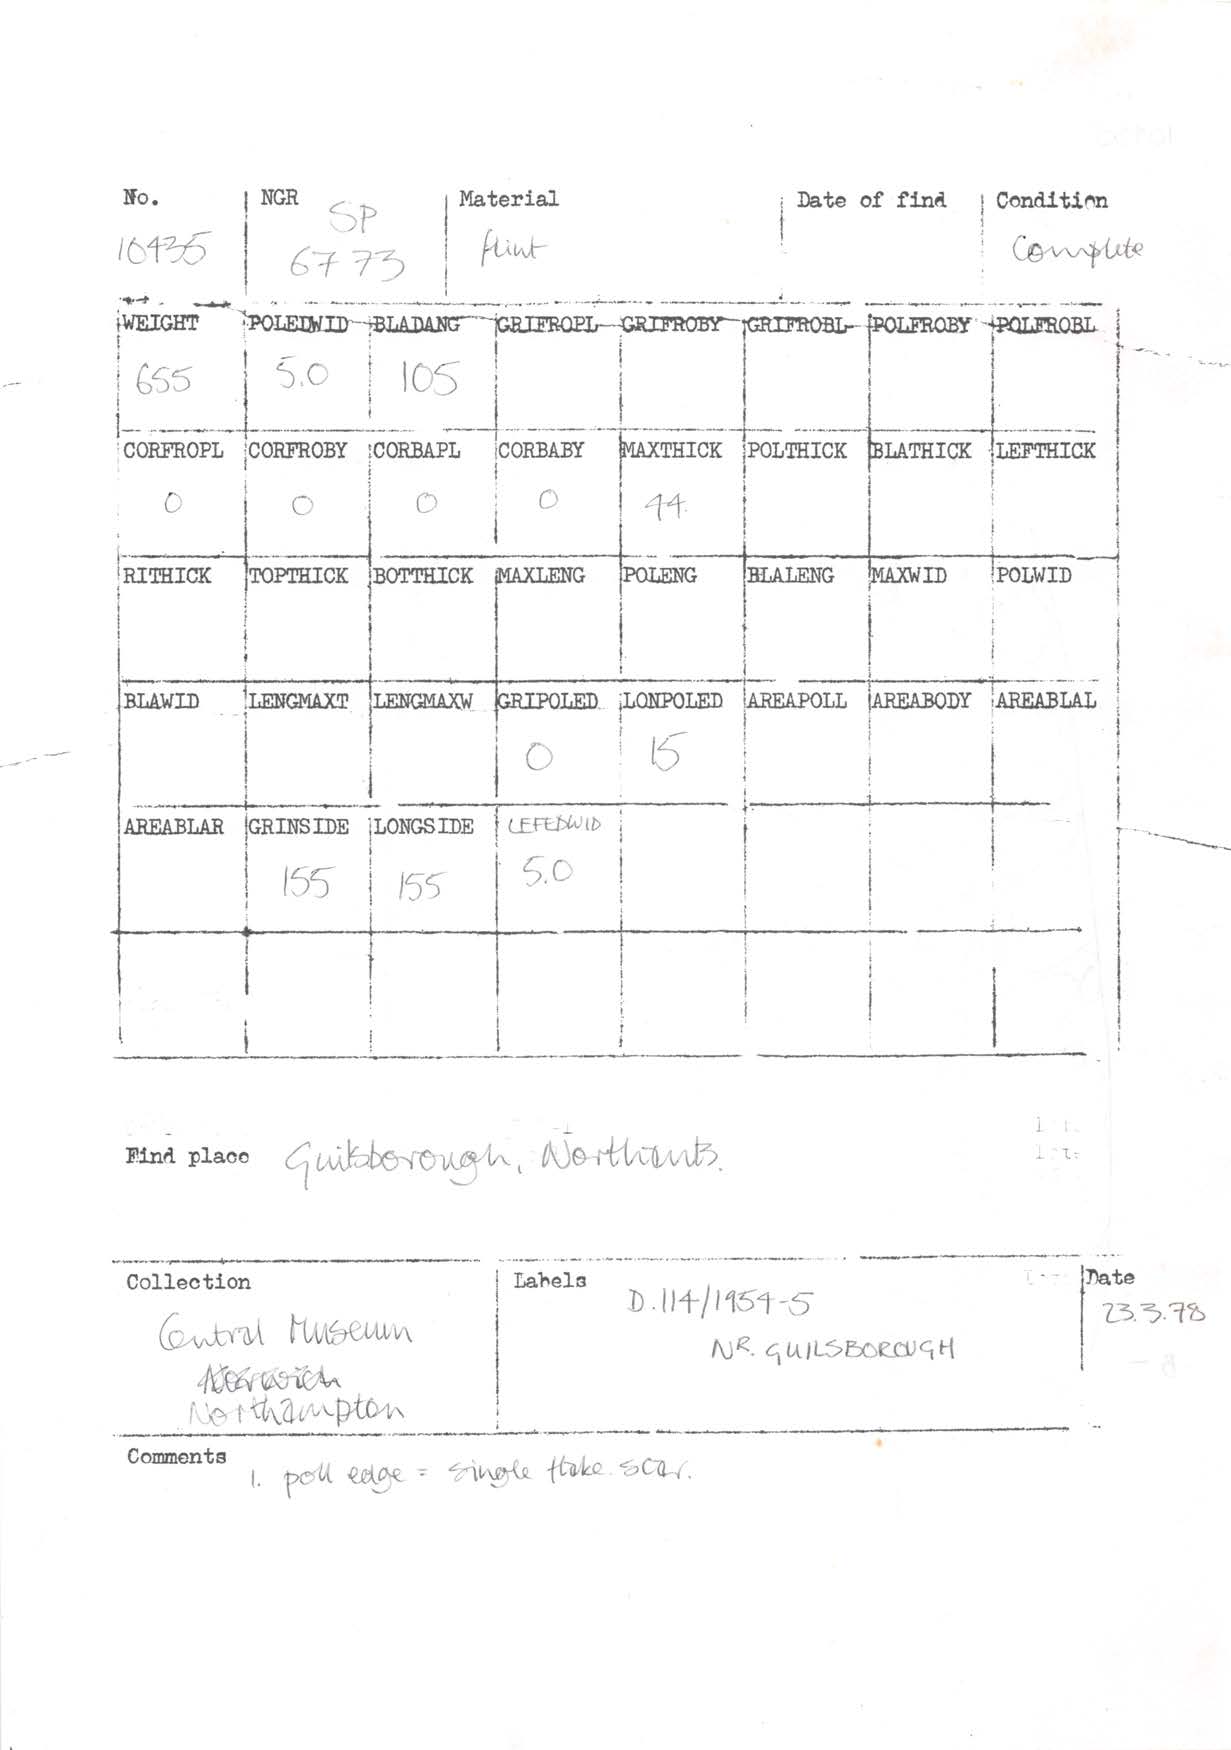 No. NGR Material Date of find Condition
10435 SP 6773 flint Complete
WEIGHT POLEDWID BLADANG GRIFROPL GRIFROBY GRIFROBL POLFROBY POLFROBL
655 5.0 105
CORFROPL CORFROBY CORBAPL CORBABY MAXTHICK POLTHICK BLATHICK LEFTHICK
0 0 0 0 44
RITHICK TOPTHICK BOTTHICK MAXLENG POLENG BLALENG MAXWID POLWID
BLAWID LENGMAXT LENGMAXW GRIPOLED LONPOLED AREAPOLL AREABODY AREABLAL
0 15
AREABLAR GRINSIDE LONGSIDE LEFEDWID
155 155 5.0
Find place Guilsborough, Northants.
Collection Labels Date
D.114/1954-5 23.3.78
Central Museum NR. GUILSBOROUGH
Northampton
Comments
1. poll edge = single flake scar.